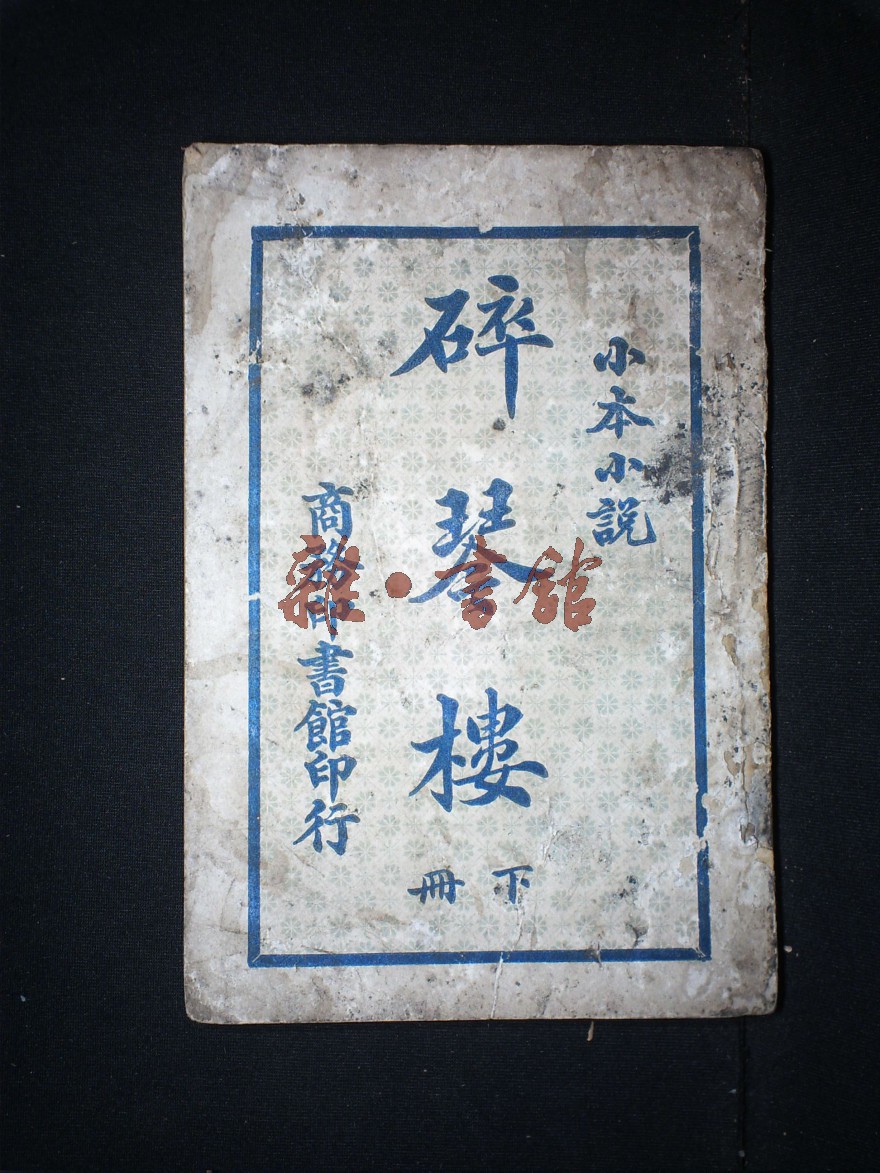 小本小説
碎琴樓
下冊
商務印書館印行
雜·書館